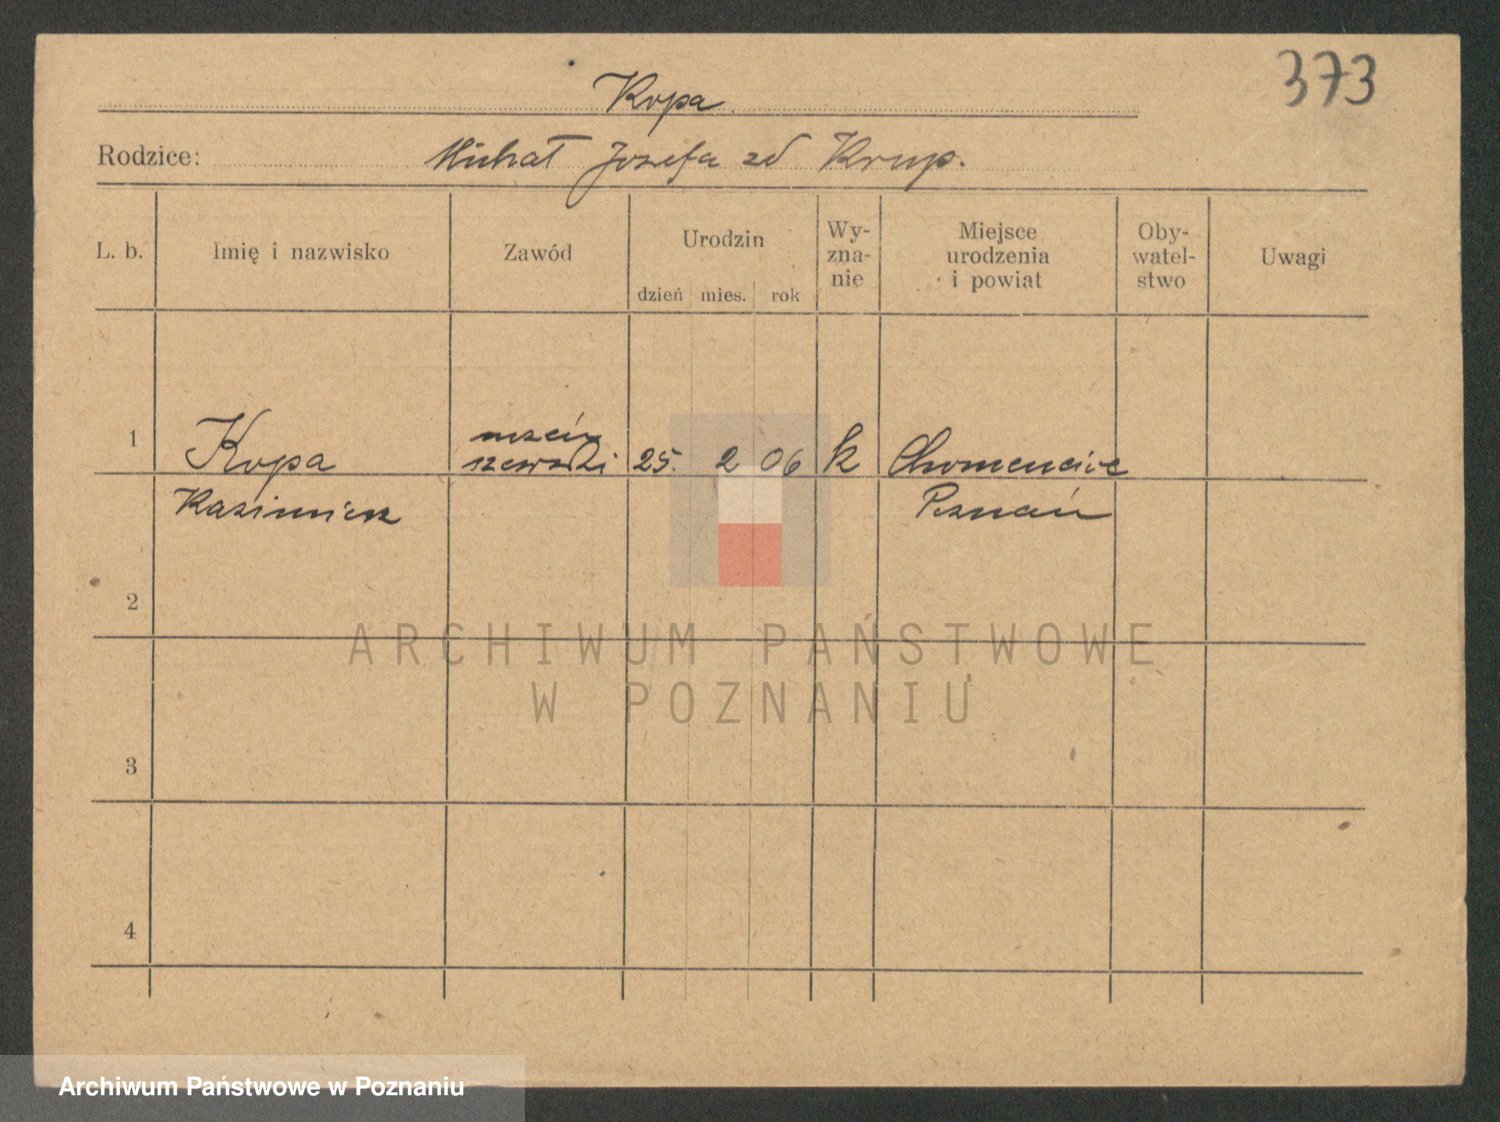 373
Kopa
Rodzice: Michał Józefa zd Krup.
L. b. Imię i nazwisko Zawód Urodzin dzień mies. rok Wy-zna-nie Miejsce urodzenia i powiat Oby-watel-stwo Uwagi
1 Kopa 25. 2 06 k Chomencice
Kazimierz Poznań
2
3
4
ARCHIWUM PAŃSTWOWE
W POZNANIU
Archiwum Państwowe w Poznaniu